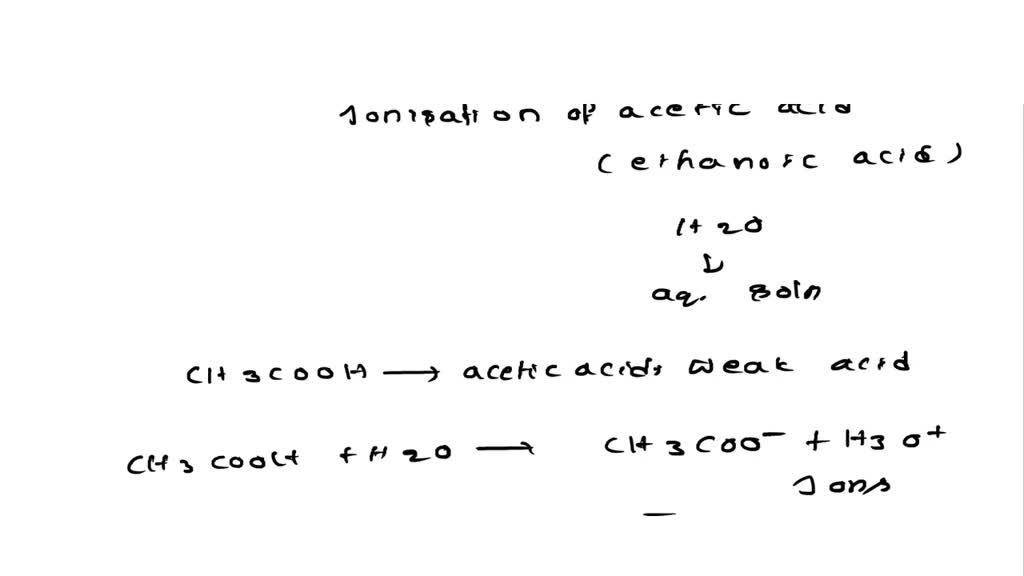 Ionisation of acetic acid
(ethanoic acid)
H2O
↓
aq. soln
CH3COOH ⟶ acetic acid, weak acid
CH3COOH + H2O ⟶ CH3COO⁻ + H3O⁺
Ions